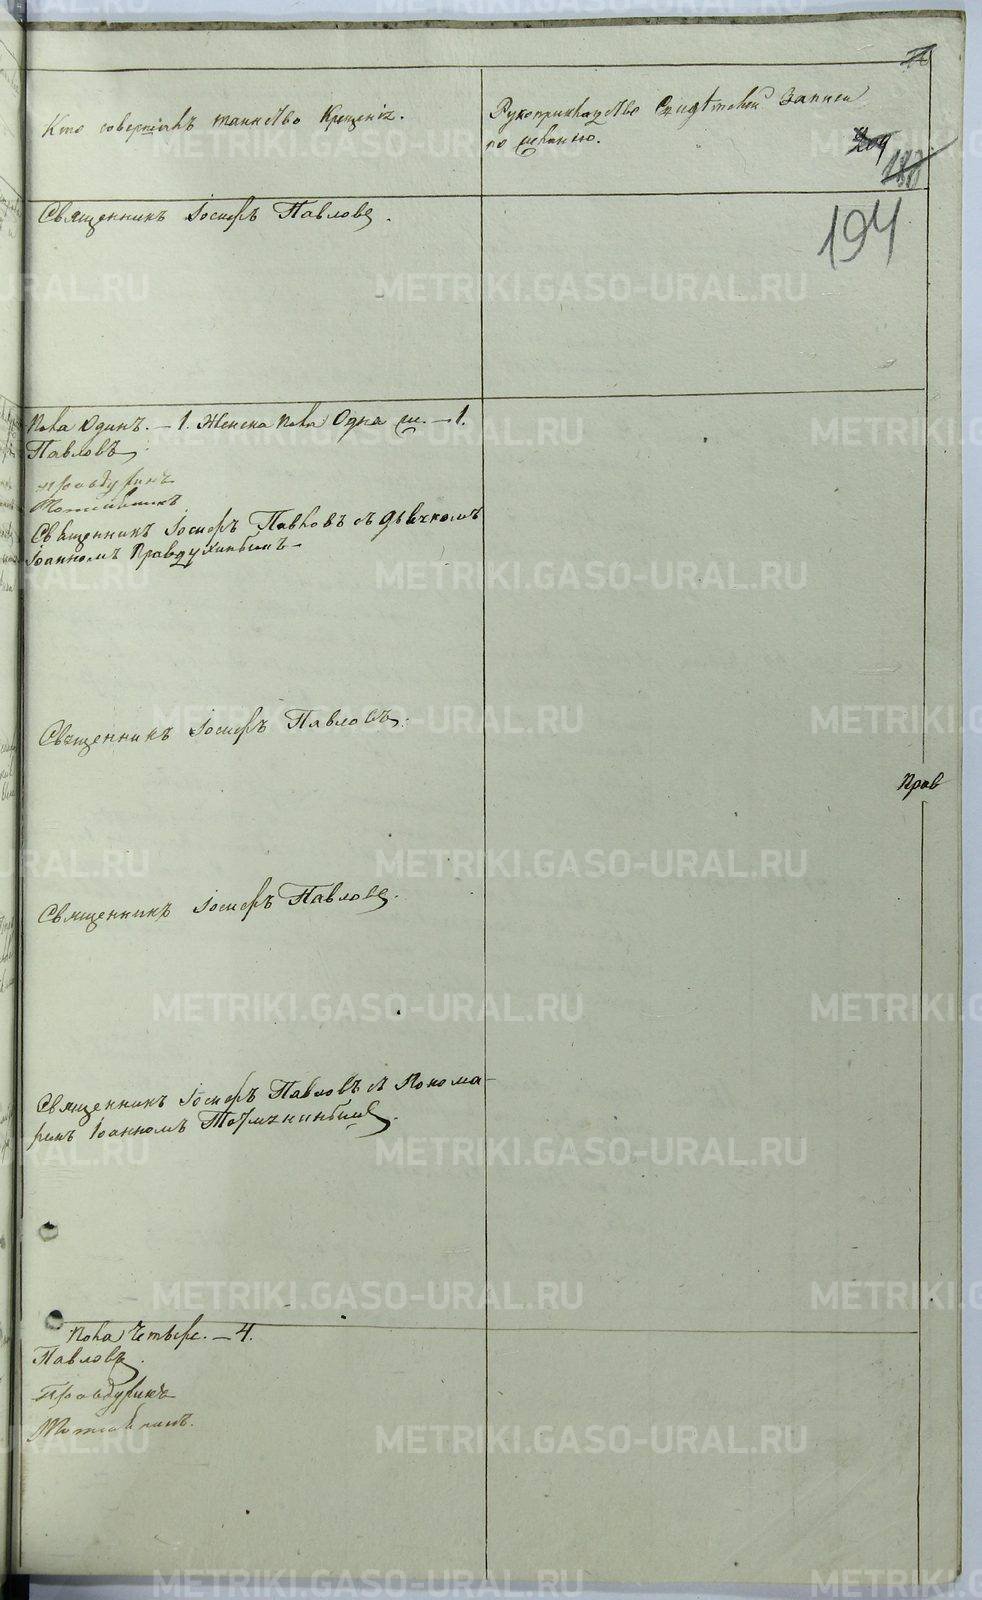 Кто совершалъ таинство Крещенія.
Рукоприкладство Свидѣтелей Записи
по желанію.
209
194
Священникъ Іосифъ Павловъ.
пола Одинъ. — 1. Женска пола Одна — 1.
Павловъ
Правдухинъ
Священникъ Іосифъ Павловъ съ Дьячкомъ
Іоанномъ Правдухинымъ —
Священникъ Іосифъ Павловъ.
Прав
Священникъ Іосифъ Павловъ.
Священникъ Іосифъ Павловъ съ Понома-
ремъ Іоанномъ
пола Четыре. — 4.
Павловъ.
Правдухинъ
METRIKI.GASO-URAL.RU